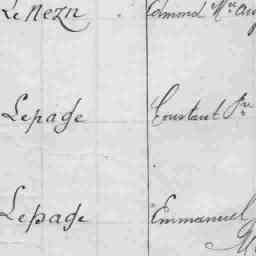 Le Nezn Edmond Mie Aug
Lepage Constant Fr
Lepage Emmanuel
M